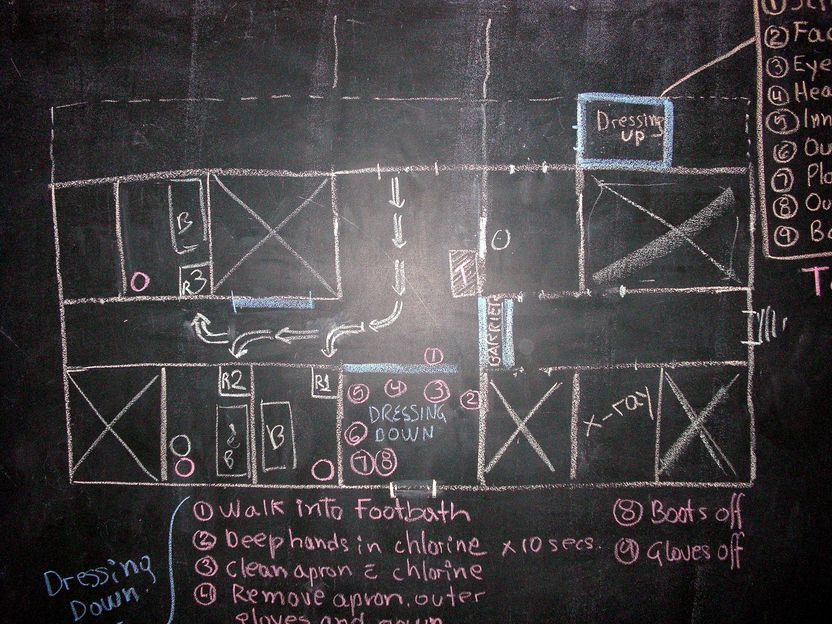 ①
② Fac
③ Eye
④ Hea
⑤ Inn
⑥ Ou
⑦ Pla
⑧ Ou
⑨ Bo
Dressing
UP
B
R3
T
BARRIER
R2
R1
B
B
①
②
③
④
⑤
⑥
⑦ ⑧
DRESSING
DOWN
x-ray
Dressing
Down
① Walk into Footbath
② Deep hands in chlorine x 10 secs.
③ Clean apron c chlorine
④ Remove apron, outer
gloves and gown
⑧ Boots off
⑨ Gloves off